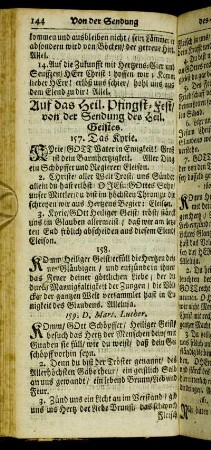 144 Von der Sendung
kommen und ausbleiben nicht / sein Lämmer
absondern wird von Böcken / der getreue Hirt
Allel.
14. Auf die Zukunft mit Hertzens-Gier und
Seufftzen HErr Christ! hoffen wir / Komm
lieber HErr! erlöß uns schier / hohl uns aus
dem Elend zu dir! Allel.
Auf das Heil. Pfingst-Fest
von der Sendung des Heil.
Geistes.
157. Das Kyrie.
KYrie / GOTT Vater in Ewigkeit! Groß
ist dein Barmhertzigkeit. Aller Ding
ein Schöpffer und Regierer Eleison.
2. Christe aller Welt Trost! uns Sünder
allein du hast erlöst! O JEsu GOttes Sohn
unser Mittler / bist in höchsten Throne zu
dir schreyen wir aus Hertzens Begier: Eleison.
3. Kyrie / GOtt Heiliger Geist! tröst / stärck
uns im Glauben allermeist / daß wir am letzten
End frölich abscheiden aus diesem Elend
Eleison.
158.
KOmm / Heiliger Geist / erfüll die Hertzen deiner
Gläubigen / und entzünde in ihnen
das Feuer deiner göttlichen Liebe / der du
durch Mannigfaltigkeit der Zungen / die Völcker
der gantzen Welt versammlet hast in Einigkeit
des Glaubens. Alleluja.
159. D. Mart. Luther.
KOmm / GOtt Schöpffer / Heiliger Geist
besuch das Hertz der Menschen dein / mit
Gnaden sie füll / wie du weist / daß dein Geschöpf
vorhin seyn.
2. Denn du bist der Tröster genannt / des
Allerhöchsten Gabe theur / ein geistlich Salb
an uns gewandt / ein lebend Brunn / Lieb und
Feur.
3. Zünd uns ein Licht an im Verstand / gib
uns ins Hertz der Liebe Brunst / das schwach
Fleisch